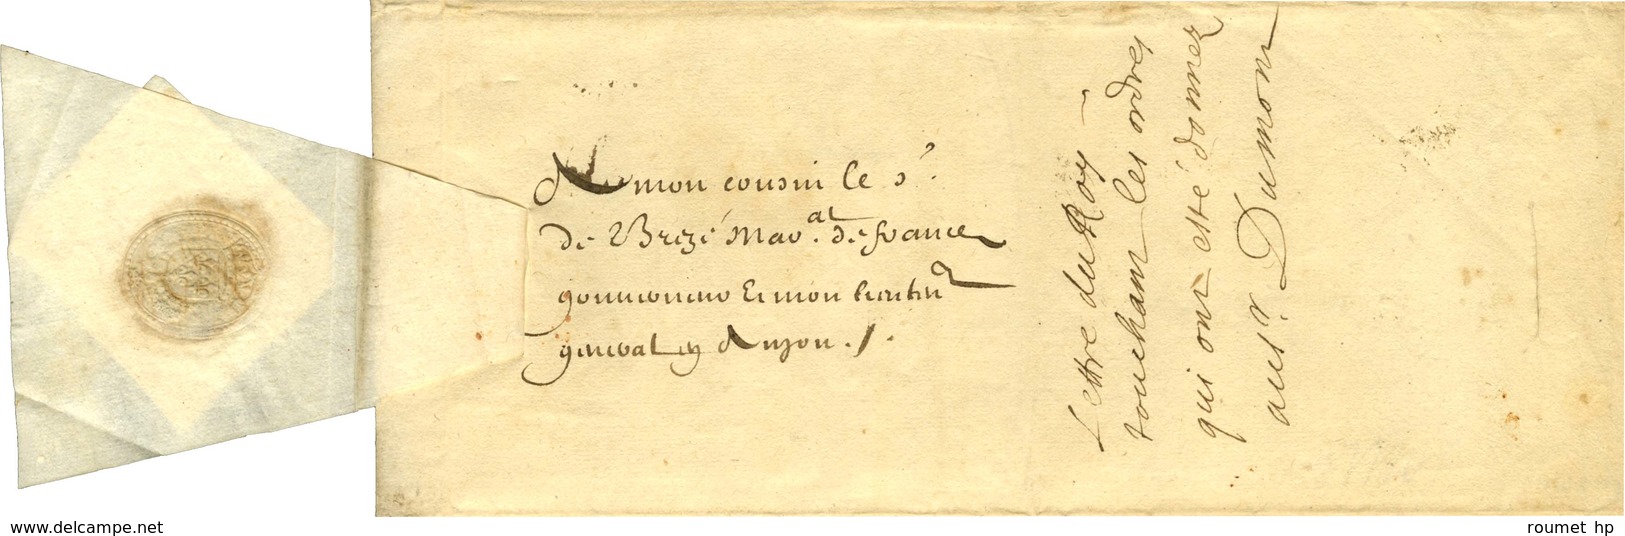 A mon cousin le S.r
de Brezé Mar.al de france
gouuerneur Et mon lieuten.t
general en Anjou ./.
Lettre du Roy
touchant les ordres
qui ont esté donnez
au s.r Dumont
www.delcampe.net
roumet hp